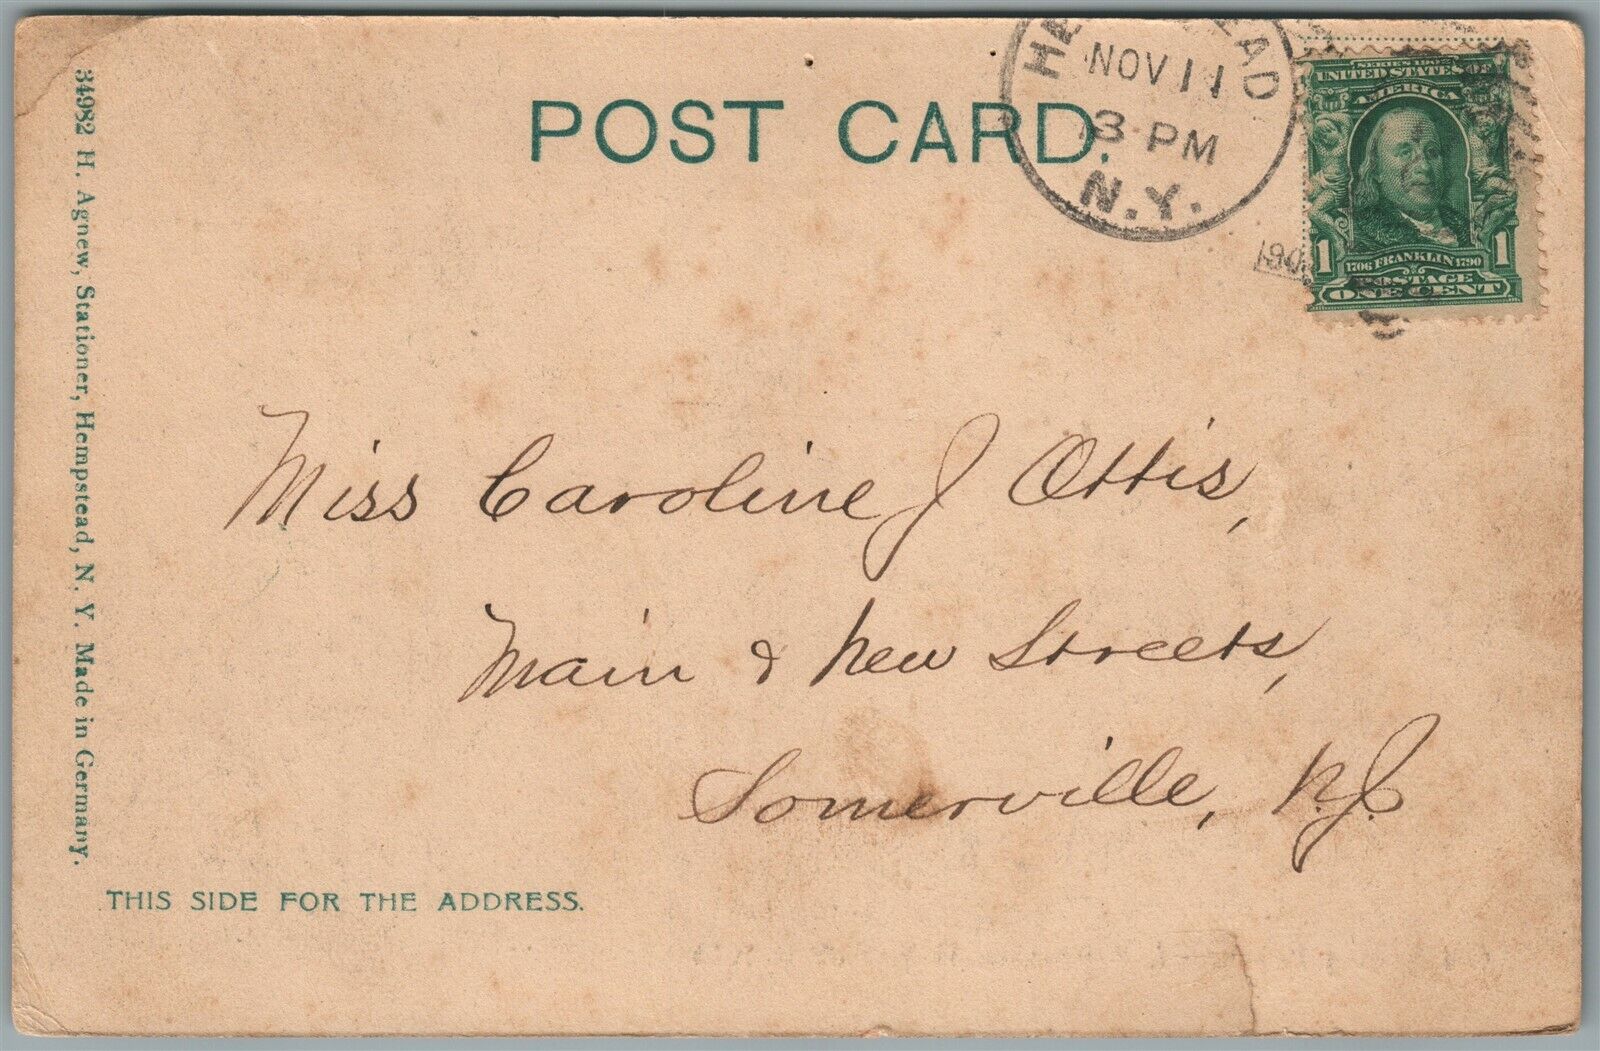 POST CARD.
NOV 11
3 PM
N.Y.
SERIES 1902
UNITED STATES OF
AMERICA
1 1
1706 FRANKLIN 1790
POSTAGE
ONE CENT
Miss Caroline J Ottis,
Main & New Streets,
Somerville, N.J.
34982 H. Agnew, Stationer, Hempstead, N. Y. Made in Germany.
THIS SIDE FOR THE ADDRESS.